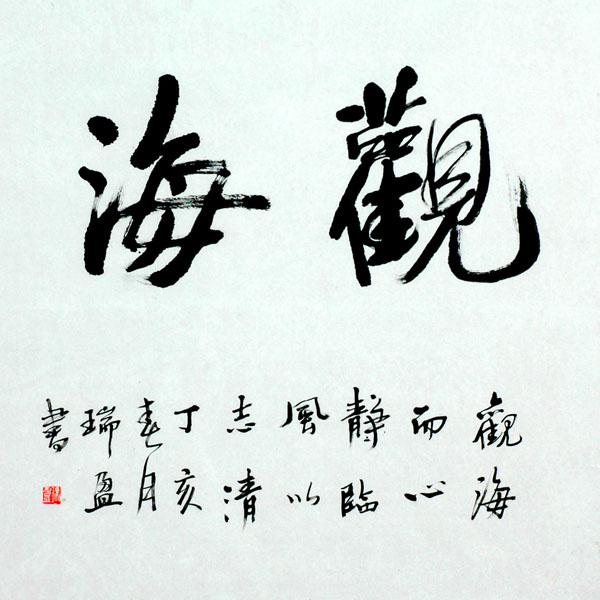 觀海
觀海
而心
静臨
風以
志清
丁亥
春月
瑞盈
書